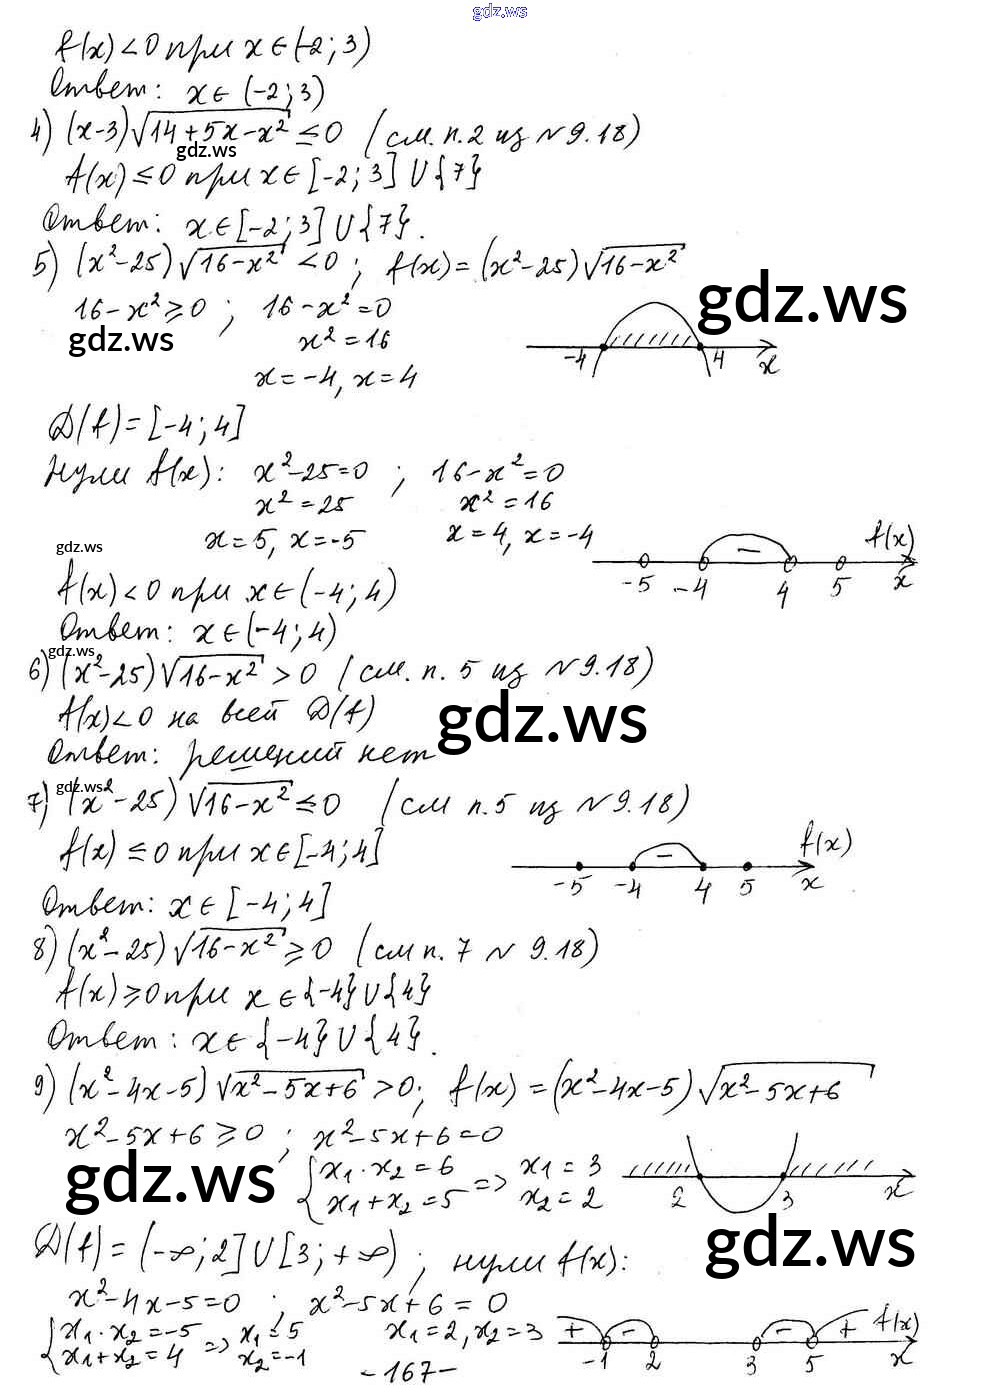 gdz.ws
f(x) < 0 при x ∈ (-2; 3)
Ответ: x ∈ (-2; 3)
4) (x-3)√(14+5x-x²) ≤ 0 (см. п. 2 из №9.18)
gdz.ws
f(x) ≤ 0 при x ∈ [-2; 3] ∪ {7}
Ответ: x ∈ [-2; 3] ∪ {7}.
5) (x²-25)√(16-x²) < 0; f(x) = (x²-25)√(16-x²)
16-x² ≥ 0; 16-x² = 0
gdz.ws
gdz.ws x² = 16
-4 4 x
x = -4, x = 4
D(f) = [-4; 4]
Нули f(x): x²-25=0; 16-x²=0
x² = 25 x² = 16
x = 5, x = -5 x = 4, x = -4 f(x)
gdz.ws
- -5 -4 4 5 x
f(x) < 0 при x ∈ (-4; 4)
Ответ: x ∈ (-4; 4)
gdz.ws
6) (x²-25)√(16-x²) > 0 (см. п. 5 из №9.18)
f(x) < 0 на всей D(f)
gdz.ws
Ответ: решений нет
gdz.ws
7) (x²-25)√(16-x²) ≤ 0 (см п. 5 из №9.18)
f(x) ≤ 0 при x ∈ [-4; 4] f(x)
- -5 -4 4 5 x
Ответ: x ∈ [-4; 4]
8) (x²-25)√(16-x²) ≥ 0 (см п. 7 № 9.18)
f(x) ≥ 0 при x ∈ {-4} ∪ {4}
Ответ: x ∈ {-4} ∪ {4}.
9) (x²-4x-5)√(x²-5x+6) > 0; f(x) = (x²-4x-5)√(x²-5x+6)
x²-5x+6 ≥ 0; x²-5x+6=0
gdz.ws
{x₁·x₂ = 6 => x₁ = 3
x₁+x₂ = 5 x₂ = 2
2 3 x
gdz.ws
D(f) = (-∞; 2] ∪ [3; +∞); нули f(x):
x²-4x-5=0; x²-5x+6=0
{x₁·x₂ = -5 => x₁ = 5 x₁=2, x₂=3
x₁+x₂ = 4 x₂ = -1
+ - - + f(x)
-1 2 3 5 x
-167-